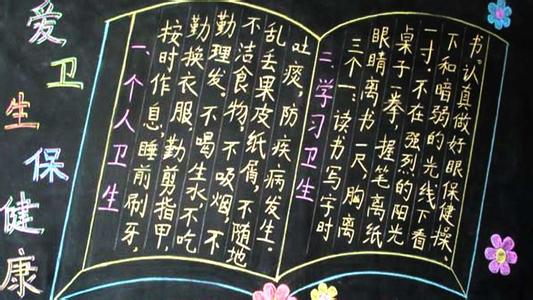 爱卫生保健康
一、个人卫生
按时作息,睡前刷牙,
勤换衣服,勤剪指甲,
勤理发,不喝生水不吃
不洁食物,不吸烟,不
乱丢果皮纸屑,不随地
吐痰,防疾病发生。
二、学习卫生
三个一:读书写字时
眼睛离书一尺,胸离
桌子一拳,握笔离纸
一寸,不在强烈的阳光
下和暗弱的光线下看
书。认真做好眼保健操。